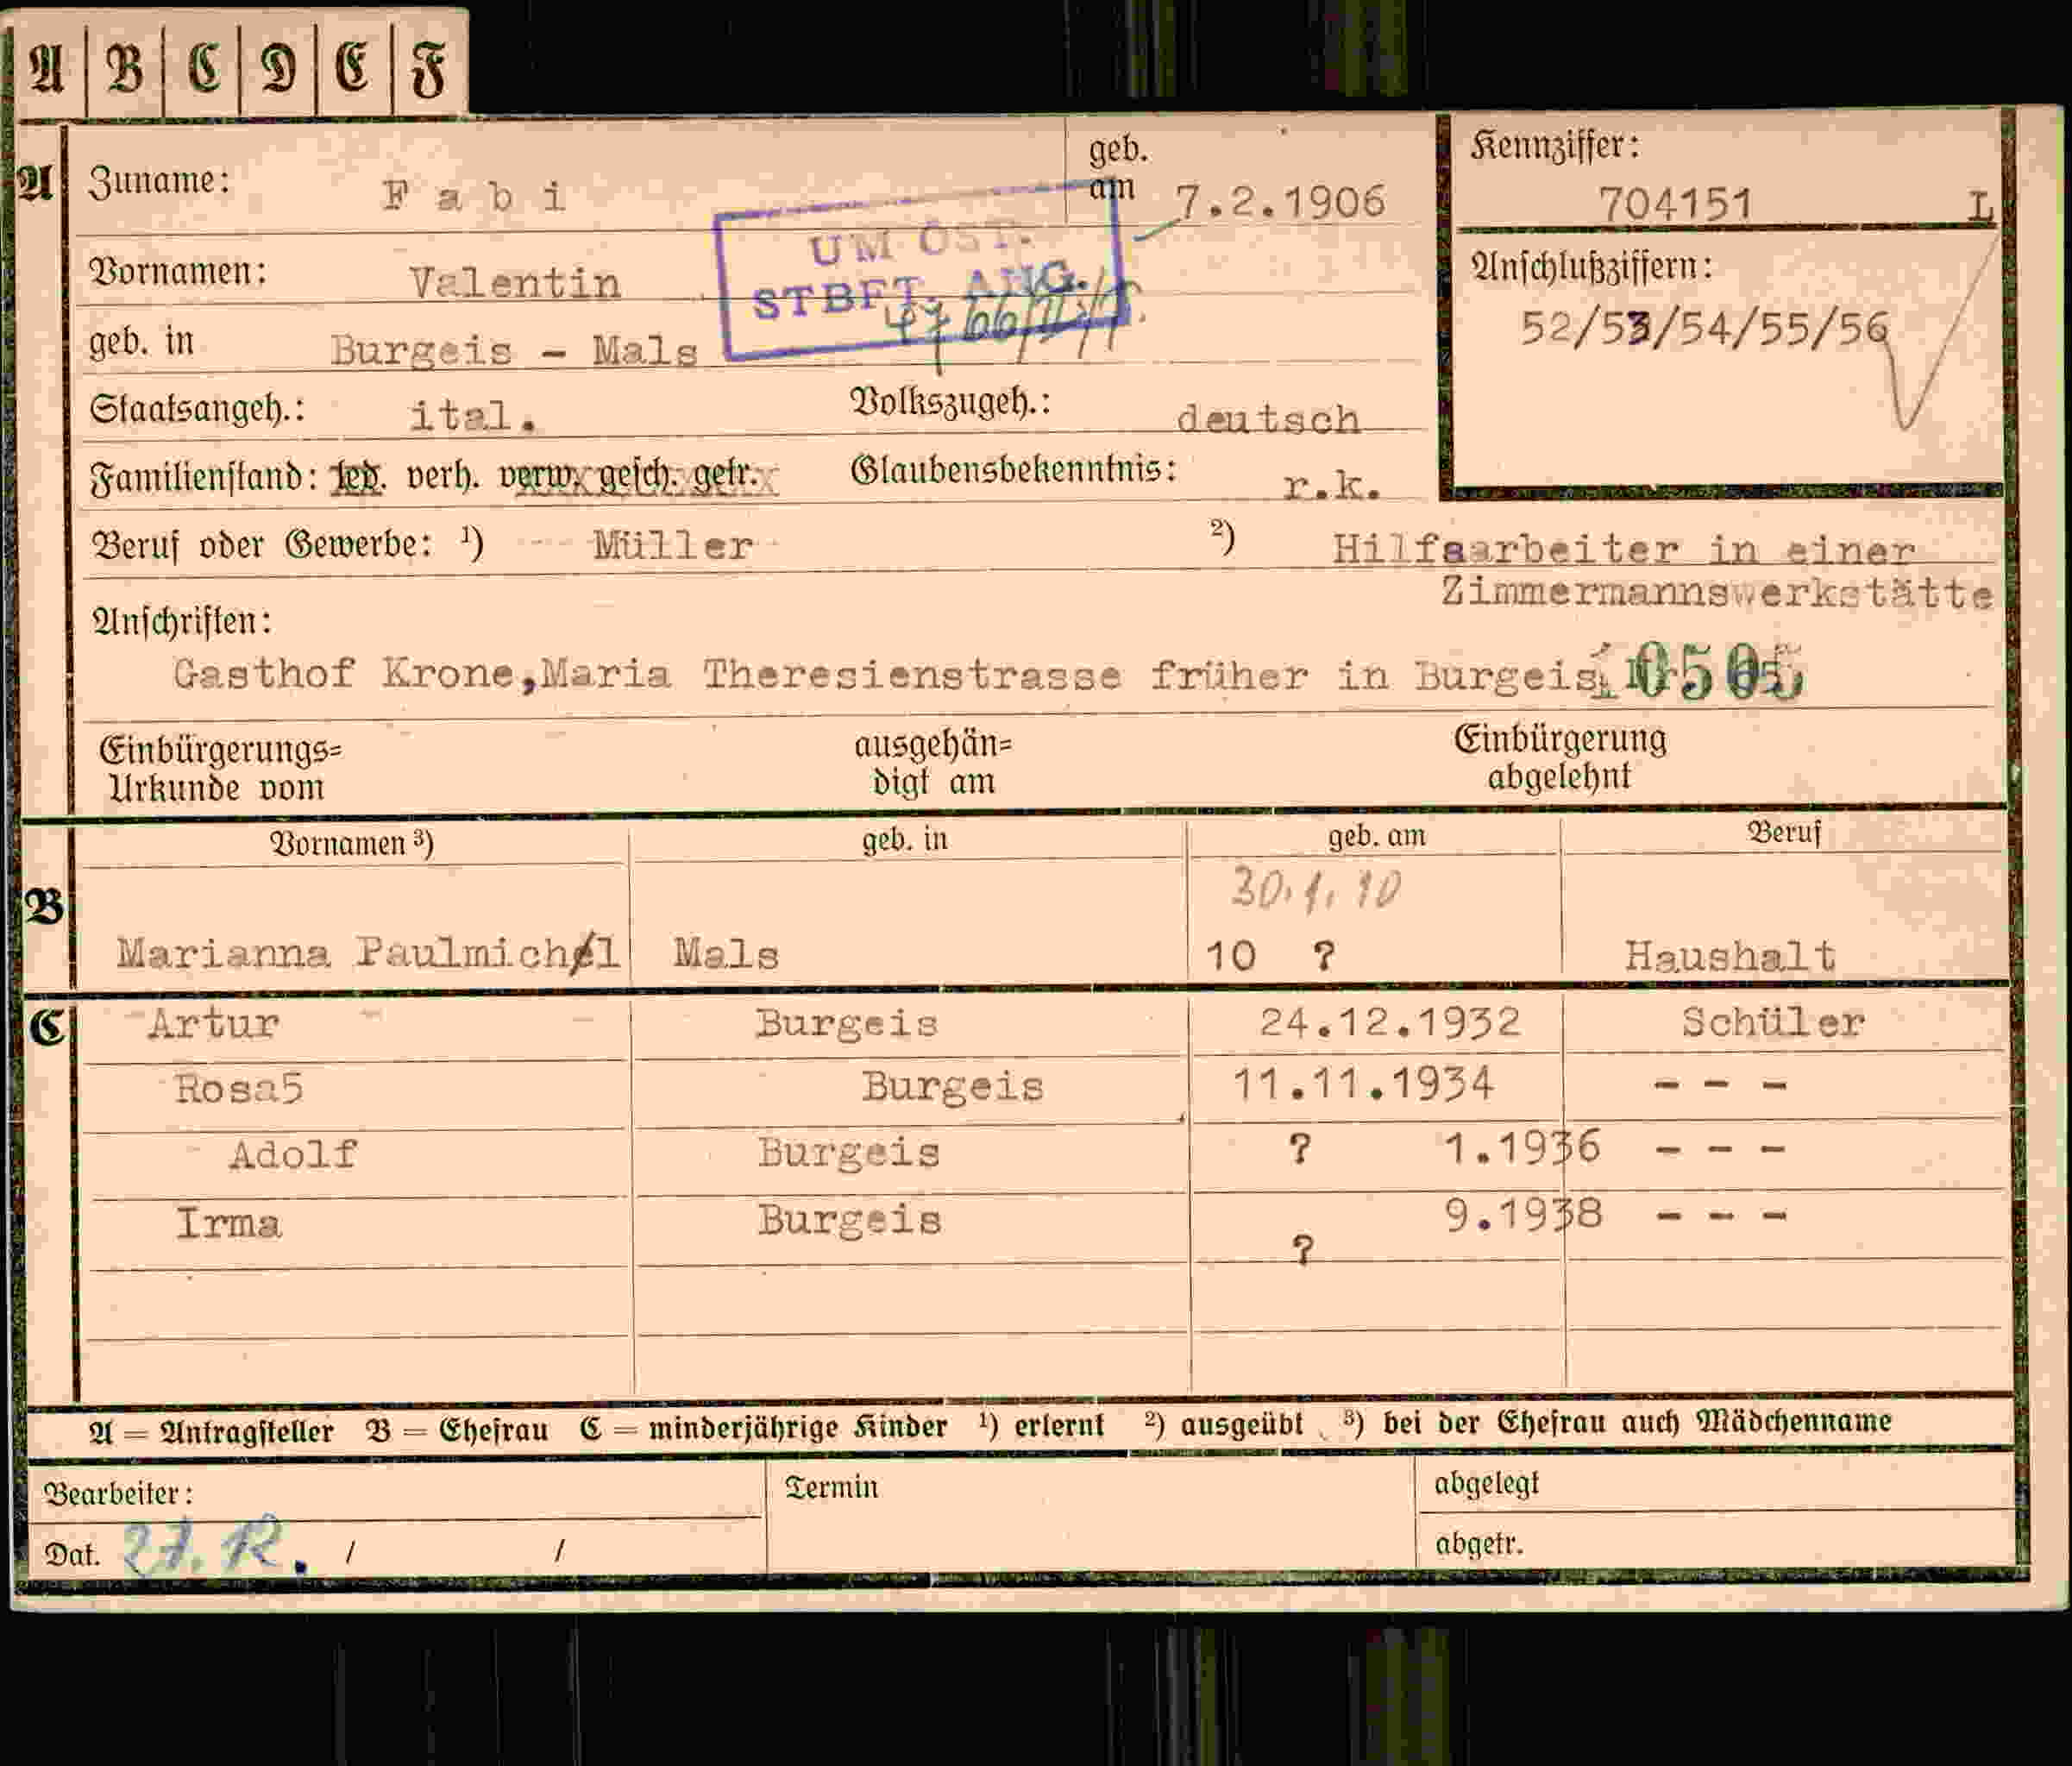 A B C D E F
A Zuname: Fabi geb. am 7.2.1906
Kennziffer: 704151 L
UM OST.
STBFT. ANG.
Vornamen: Valentin
Anschlußziffern:
52/53/54/55/56
geb. in Burgeis - Mals
Staatsangeh.: ital. Volkszugeh.: deutsch
Familienstand: led. verh. verw. gesch. getr. Glaubensbekenntnis: r.k.
Beruf oder Gewerbe: ¹) Müller ²) Hilfsarbeiter in einer
Zimmermannswerkstätte
Anschriften:
Gasthof Krone,Maria Theresienstrasse früher in Burgeis
Einbürgerungs= ausgehän= Einbürgerung
Urkunde vom digt am abgelehnt
Vornamen ³) geb. in geb. am Beruf
30.1.10
B Marianna Paulmichl Mals 10 ? Haushalt
C Artur Burgeis 24.12.1932 Schüler
Rosa5 Burgeis 11.11.1934 - - -
Adolf Burgeis ? 1.1936 - - -
Irma Burgeis ? 9.1938 - - -
A = Antragsteller B = Ehefrau C = minderjährige Kinder ¹) erlernt ²) ausgeübt ³) bei der Ehefrau auch Mädchenname
Bearbeiter: Termin abgelegt
Dat. 27.12. / / abgetr.